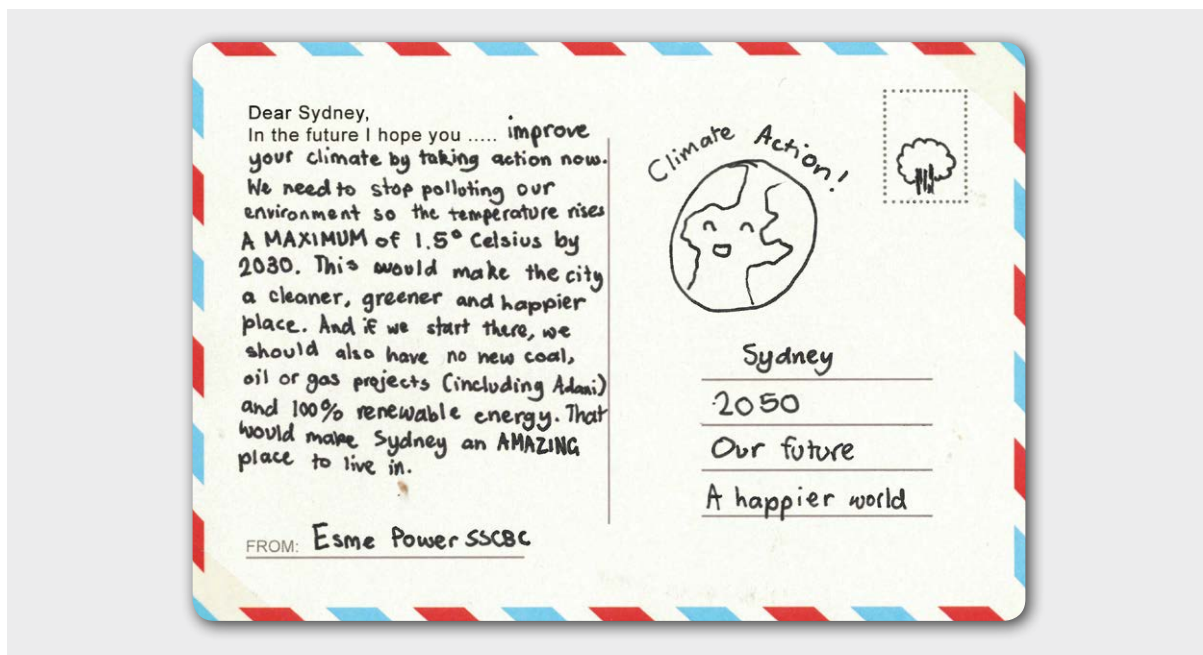 Dear Sydney,
In the future I hope you ..... improve
your climate by taking action now.
We need to stop polluting our
environment so the temperature rises
A MAXIMUM of 1.5° Celsius by
2030. This would make the city
a cleaner, greener and happier
place. And if we start there, we
should also have no new coal,
oil or gas projects (including Adani)
and 100% renewable energy. That
would make Sydney an AMAZING
place to live in.
FROM: Esme Power SSCBC
Climate Action!
Sydney
2050
Our future
A happier world